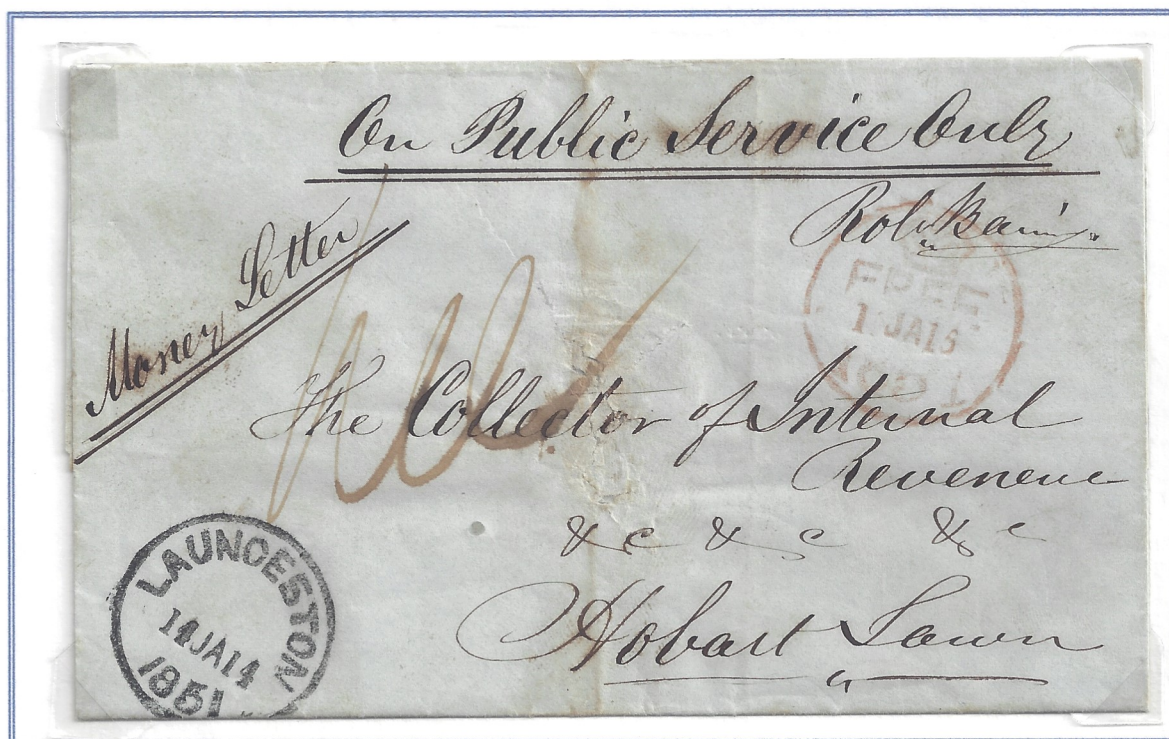 On Public Service Only
Money Letter
FREE
1 JA 15
The Collector of Internal
Reveneue
&c &c &c
Hobart Town
LAUNCESTON
14 JA 14
1851